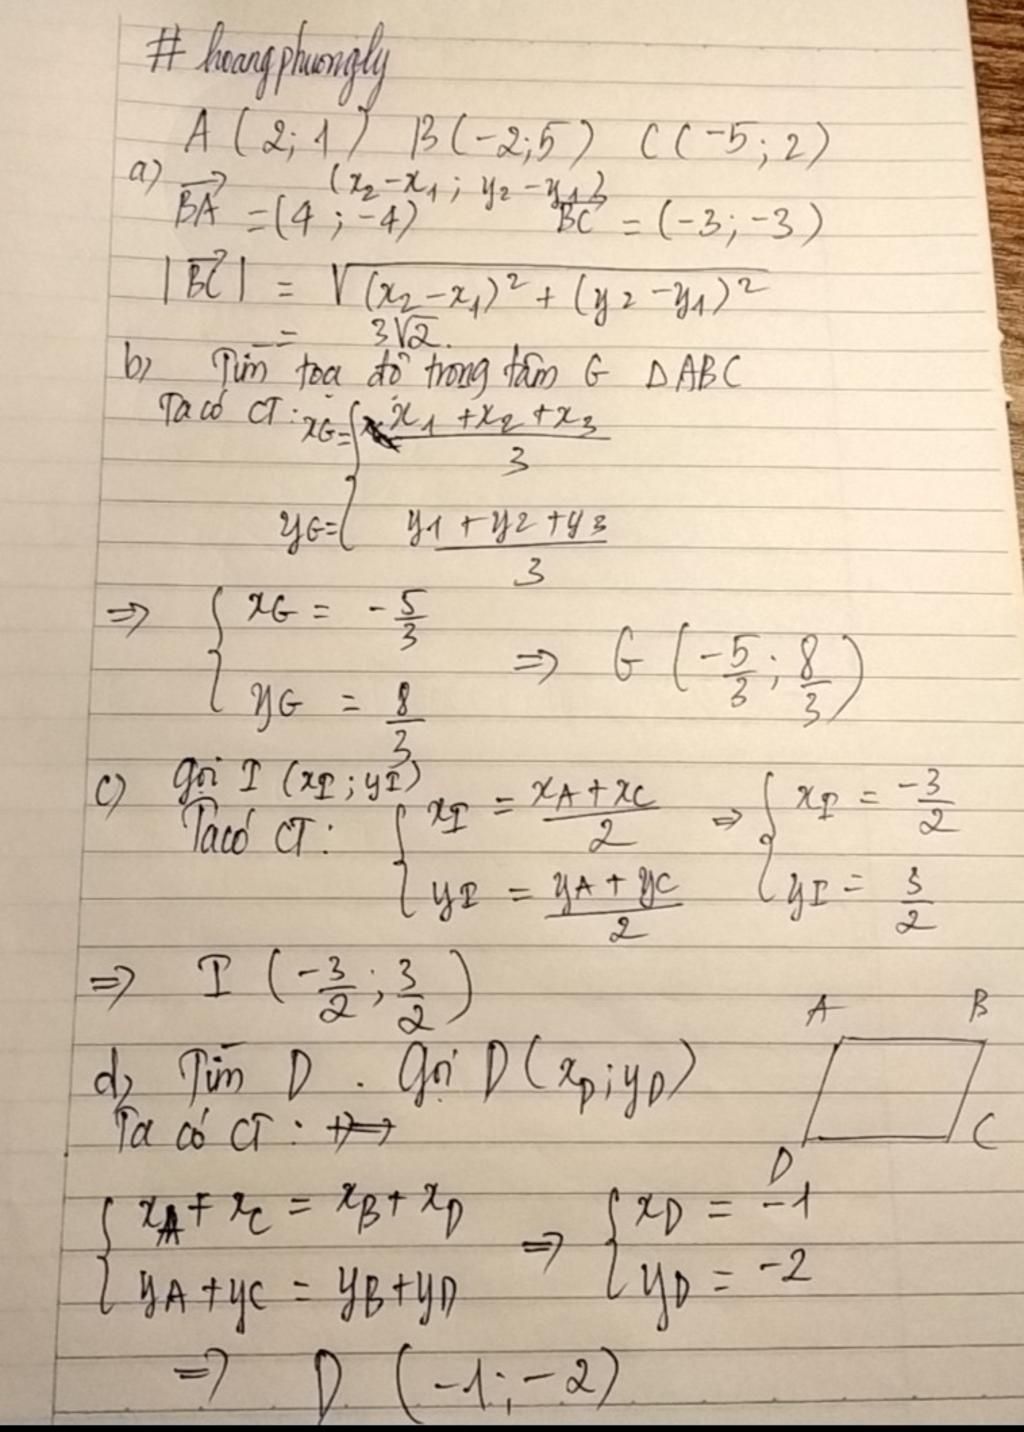 # hoangphuongly
A (2; 1) B (-2;5) C (-5; 2)
a) (x₂-x₁; y₂-y₁)
$\overrightarrow{BA}$ = (4; -4) $\overrightarrow{BC}$ = (-3; -3)
|$\overrightarrow{BC}$| = √((x₂-x₁)² + (y₂-y₁)²)
= 3√2.
b) Tìm toạ độ trọng tâm G ΔABC
Ta có CT: { xG = (x₁+x₂+x₃)/3
yG = (y₁+y₂+y₃)/3
=> { xG = -5/3
yG = 8/3 => G (-5/3; 8/3)
c) Gọi I (xI; yI)
Ta có CT: { xI = (xA+xC)/2 => { xI = -3/2
yI = (yA+yC)/2 yI = 3/2
=> I (-3/2; 3/2)
A B
d) Tìm D. Gọi D (xD; yD)
Ta có CT: C
D
{ xA+xC = xB+xD => { xD = -1
yA+yC = yB+yD yD = -2
=> D (-1; -2)